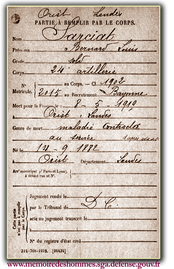 Orist Landes
PARTIE À REMPLIR PAR LE CORPS.
Nom Sarciat
Prénoms Bernard Louis
Grade sold
Corps 24e artillerie
N° au Corps. — Cl. 1902
Matricule. 2115 au Recrutement Bayonne
Mort pour la France le 8 - 5 - 1919
à Orist, Landes
Genre de mort maladie contractée
au service
Né le 14 - 9 - 1882
à Orist Département Landes
Jugement rendu le
par le Tribunal de D. C.
acte ou jugement transcrit le
à
N° du registre d'état civil
www.memoiredeshommes.sga.defense.gouv.fr